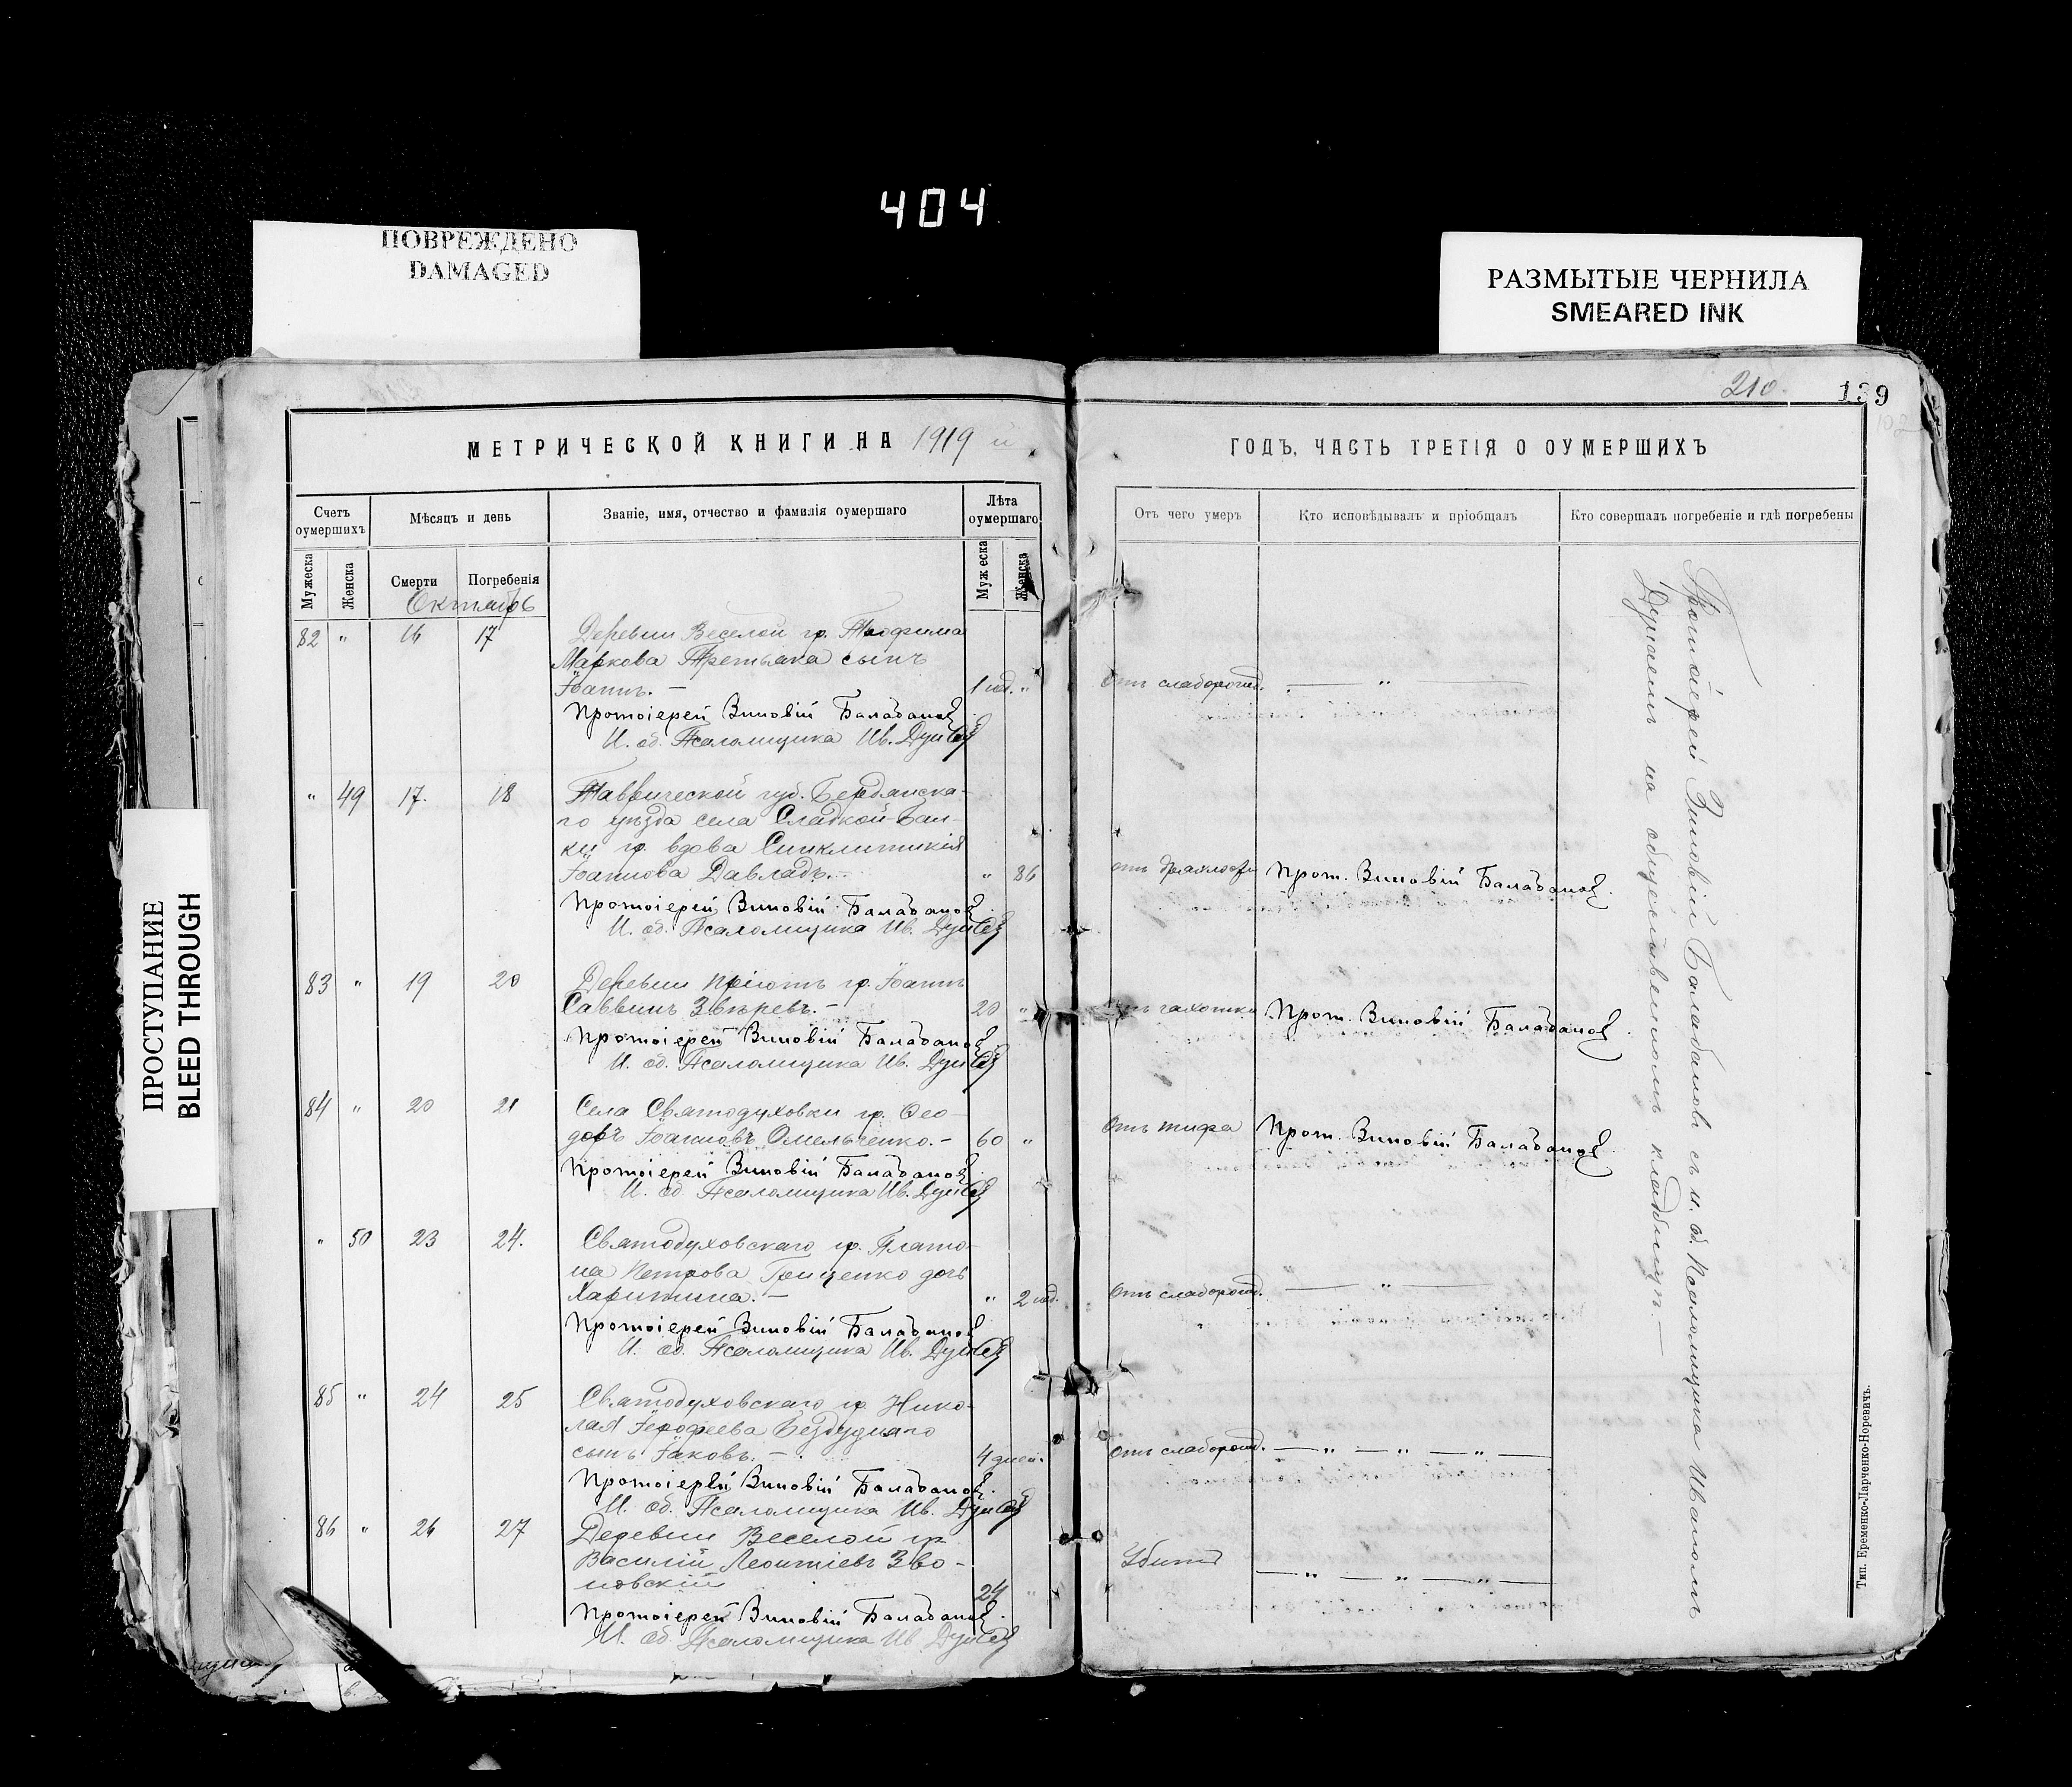 404
ПОВРЕЖДЕНО
DAMAGED
РАЗМЫТЫЕ ЧЕРНИЛА
SMEARED INK
ПРОСТУПАНИЕ
BLEED THROUGH
210
139
МЕТРИЧЕСКОЙ КНИГИ НА 1919 й
ГОДЪ, ЧАСТЬ ТРЕТІЯ О ОУМЕРШИХЪ
Счетъ оумершихъ
Мѣсяцъ и день
Званіе, имя, отчество и фамилія оумершаго
Лѣта оумершаго
Отъ чего умеръ
Кто исповѣдывалъ и пріобщалъ
Кто совершалъ погребеніе и гдѣ погребены
Мужеска
Женска
Смерти
Погребенія
Мужеска
Женска
Октябрь
82 " 16 17 Деревни Веселой гр. Трофима
Маркова Третьяка сынъ
Іоаннъ. — 1 год. " Отъ слаборожд. — " —
Протоіерей Зиновій Балабановъ
И. об. Псаломщика Ив. Дун
" 49 17. 18 Таврической губ. Бердянска-
го уѣзда села Сладкой-Бал-
ки гр. вдова Синклитикія
Іоаннова Давладъ. — " 86 отъ дряхлости Прот. Зиновій Балабановъ.
Протоіерей Зиновій Балабановъ.
И. об. Псаломщика Ив. Дун
83 " 19 20 Деревни Пріютъ гр. Іоаннъ
Саввинъ Звѣревъ. — 20 " отъ чахотки Прот. Зиновій Балабановъ.
Протоіерей Зиновій Балабановъ
И. об. Псаломщика Ив. Дун
84 " 20 21 Села Святодуховки гр. Ѳео-
доръ Іоанновъ Омельченко. — 60 " Отъ тифа Прот. Зиновій Балабановъ.
Протоіерей Зиновій Балабановъ.
И. об Псаломщика Ив. Дун
" 50 23 24. Святодуховскаго гр. Плато-
на Петрова Гонценко дочь
Харитина. — " 2 год. Отъ слаборожд. — " —
Протоіерей Зиновій Балабановъ
И. об. Псаломщика Ив. Дун
85 " 24 25 Святодуховскаго гр Нико-
лая Іерофеева Бездуднаго
сынъ Іаковъ. — 4 дней. отъ слаборожд. — " — " — " —
Протоіерей Зиновій Балабановъ.
И. об. Псаломщика Ив. Дун
86 " 26 27 Деревни Веселой гр.
Василій Леонтіевъ Зво-
новскій 24 " Убитъ — " — " — " —
Протоіерей Зиновій Балабановъ.
И. об. Псаломщика Ив Дун
Протоіерей Зиновій Балабановъ съ и. об. Псаломщика Иваномъ
на общественномъ кладбищѣ. —
Тип. Еременко-Ларченко-Норевичъ.